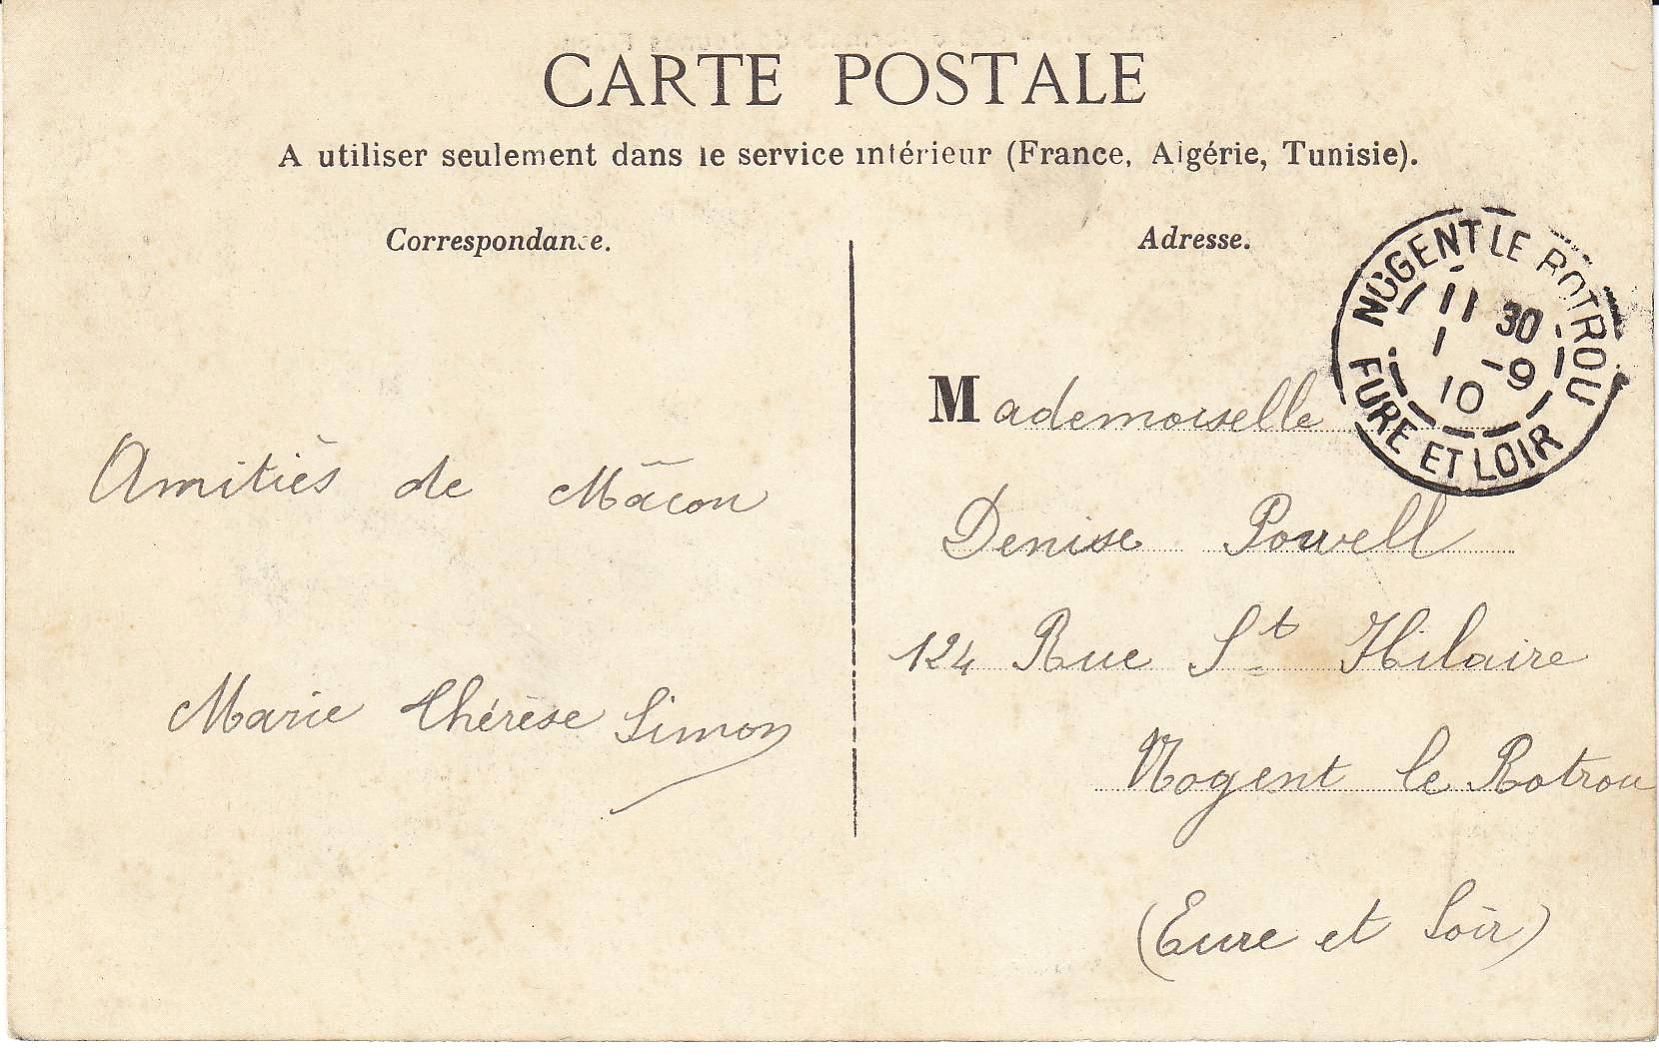 CARTE POSTALE
A utiliser seulement dans le service intérieur (France, Algérie, Tunisie).
Correspondance.
Amitiés de Mâcon
Marie Thérèse Simon
Adresse.
NOGENT LE ROTROU
11 30
1 -9
10
EURE ET LOIR
Mademoiselle
Denise Powell
124 Rue St Hilaire
Nogent le Rotrou
(Eure et Loir)